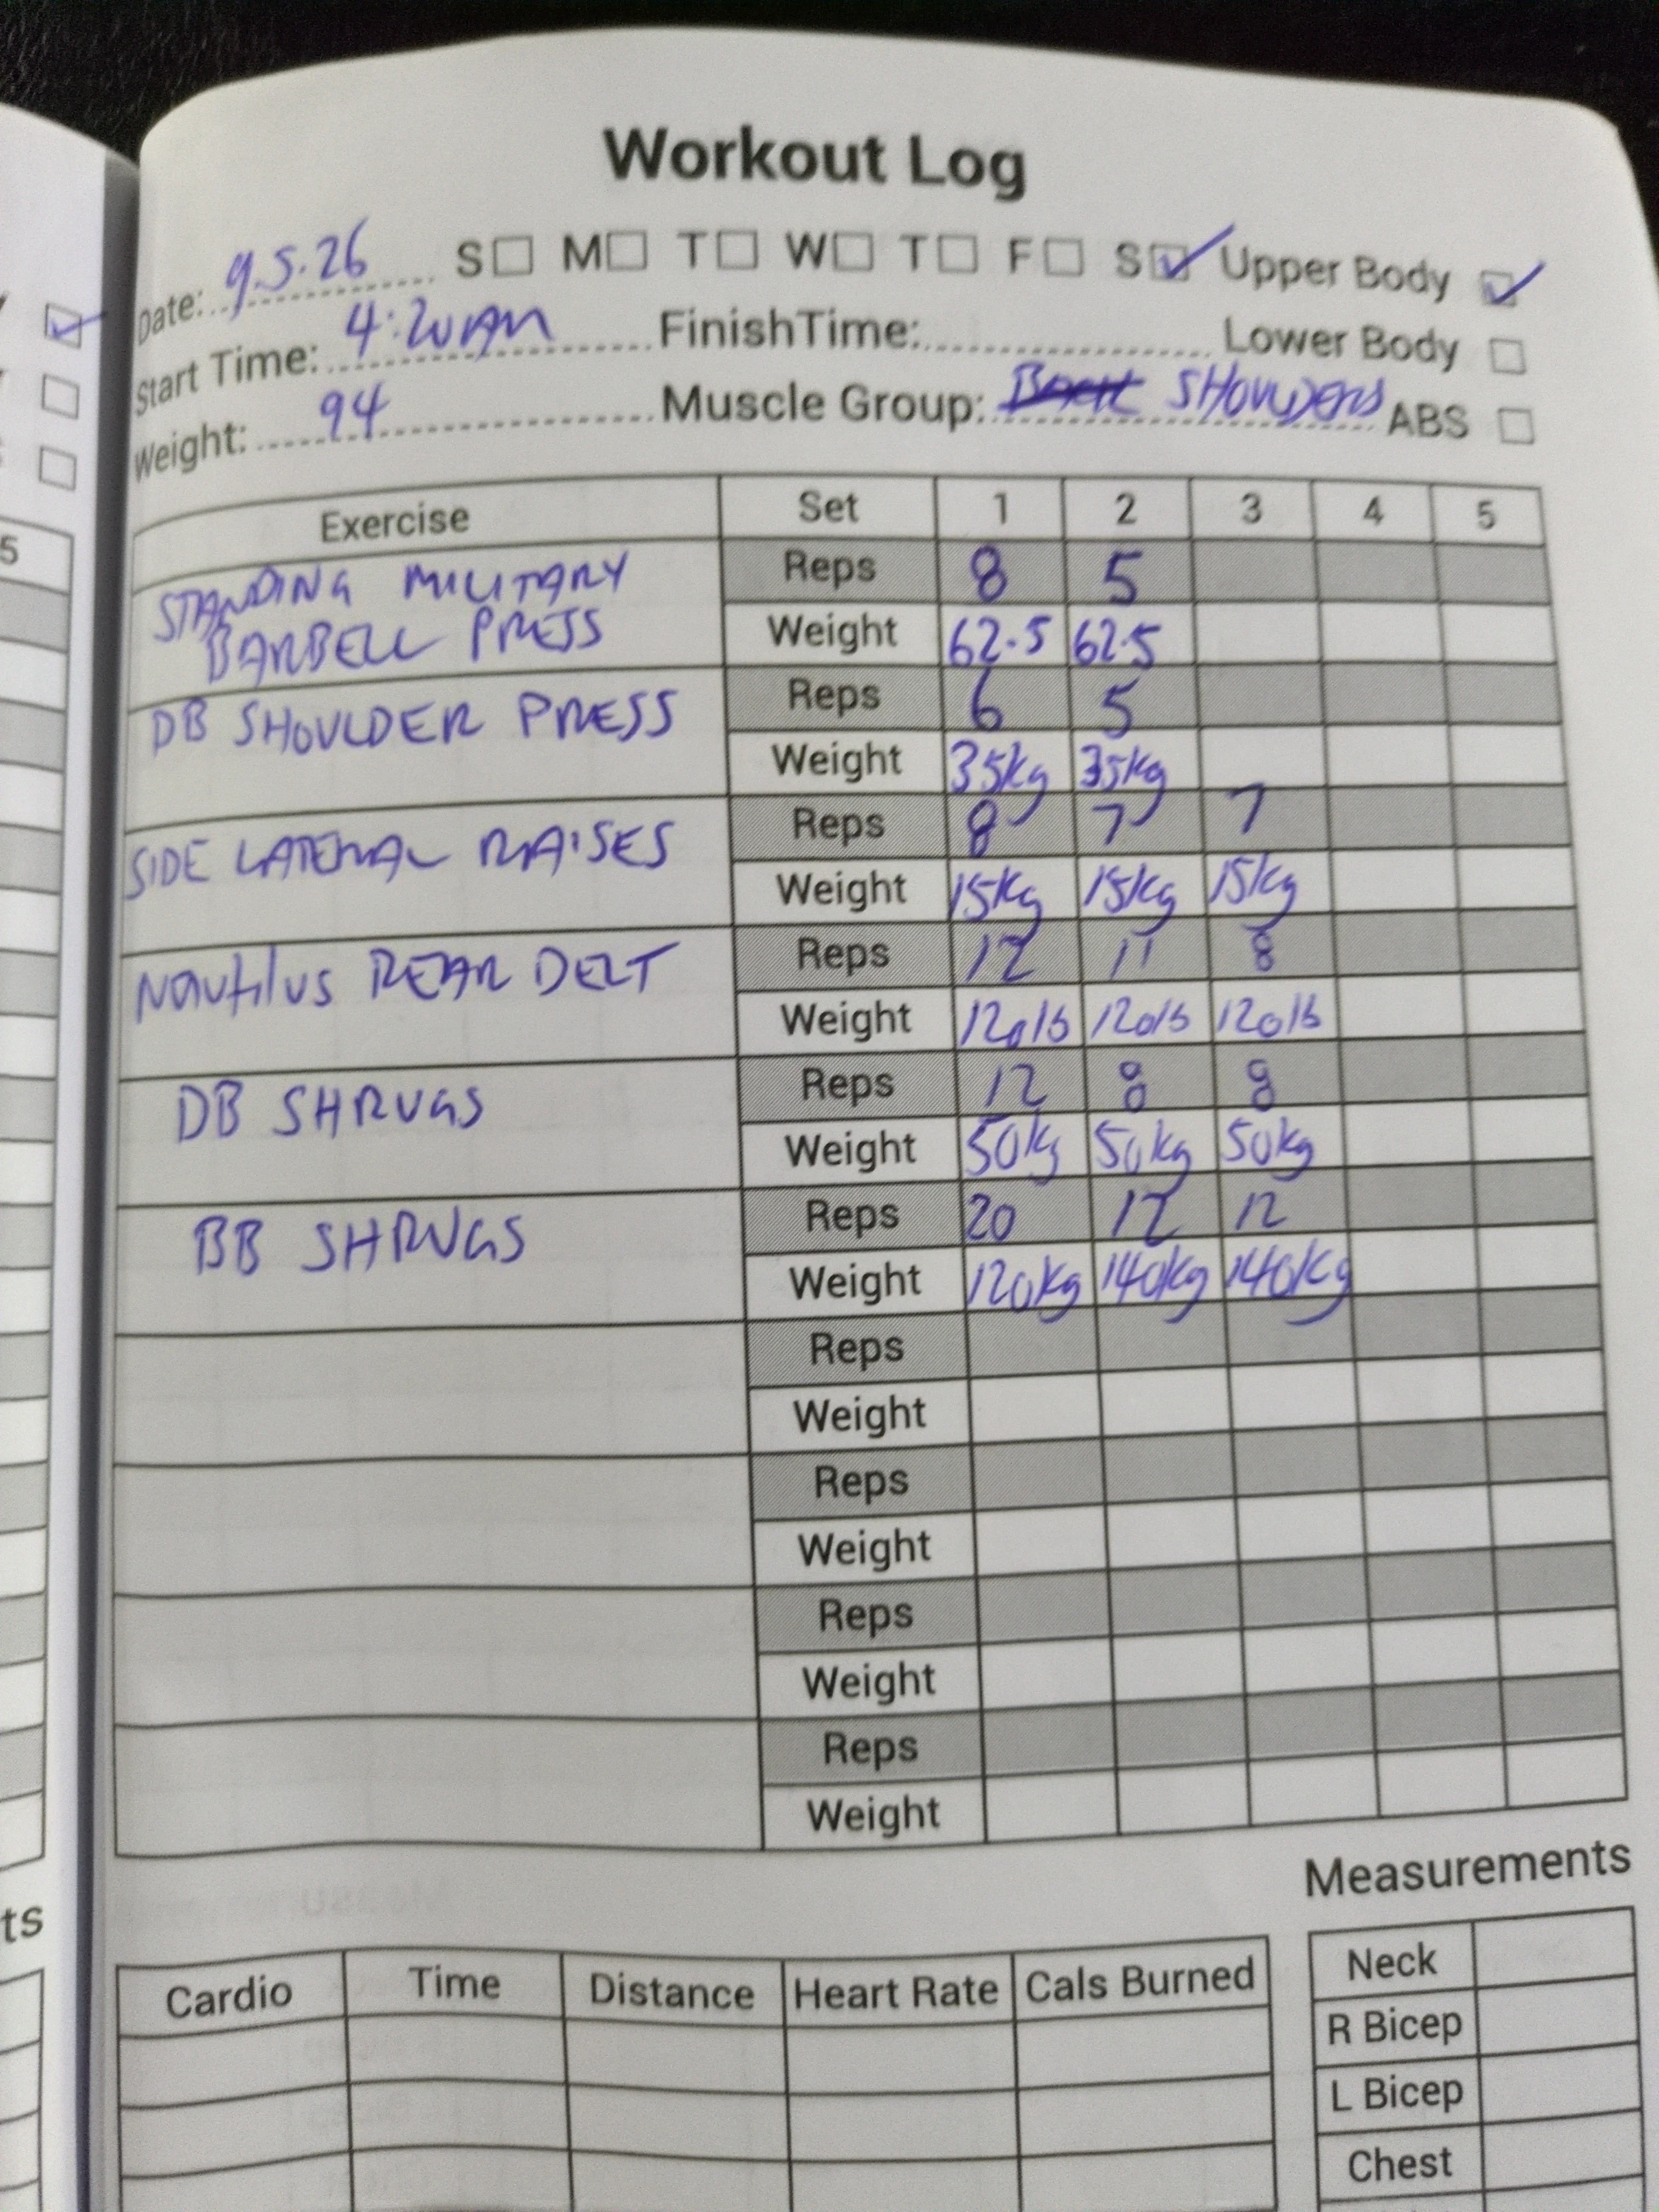 Workout Log
Date: 9.5.26 S M T W T F S Upper Body
Start Time: 4:20AM FinishTime: Lower Body
Weight: 94 Muscle Group: SHOULDERS ABS
Exercise Set 1 2 3 4 5
STANDING MILITARY BARBELL PRESS Reps 8 5
Weight 62.5 62.5
DB SHOULDER PRESS Reps 6 5
Weight 35kg 35kg
SIDE LATERAL RAISES Reps 8 7 7
Weight 15kg 15kg 15kg
Nautilus REAR DELT Reps 12 11 8
Weight 120lb 120lb 120lb
DB SHRUGS Reps 12 8 8
Weight 50kg 50kg 50kg
BB SHRUGS Reps 20 12 12
Weight 120kg 140kg 140kg
Reps
Weight
Reps
Weight
Reps
Weight
Reps
Weight
Measurements
Cardio Time Distance Heart Rate Cals Burned
Neck
R Bicep
L Bicep
Chest
5
ts